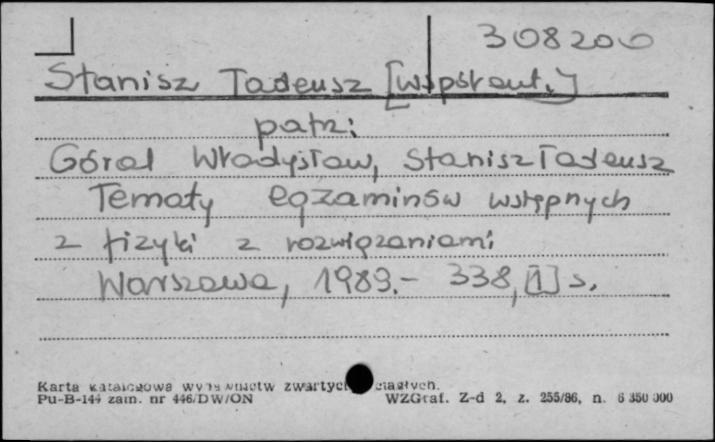 308200
Stanisz Tadeusz [współaut.]
patrz:
Góral Władysław, Stanisz Tadeusz
Tematy egzaminów wstępnych
z fizyki z rozwiązaniami
Warszawa, 1983.- 338, [1] s.
Karta katalogowa wydawnictw zwartych ciągłych.
Pu-B-144 zam. nr 446/DW/ON WZGraf. Z-d 2, z. 255/86, n. 6 350 000